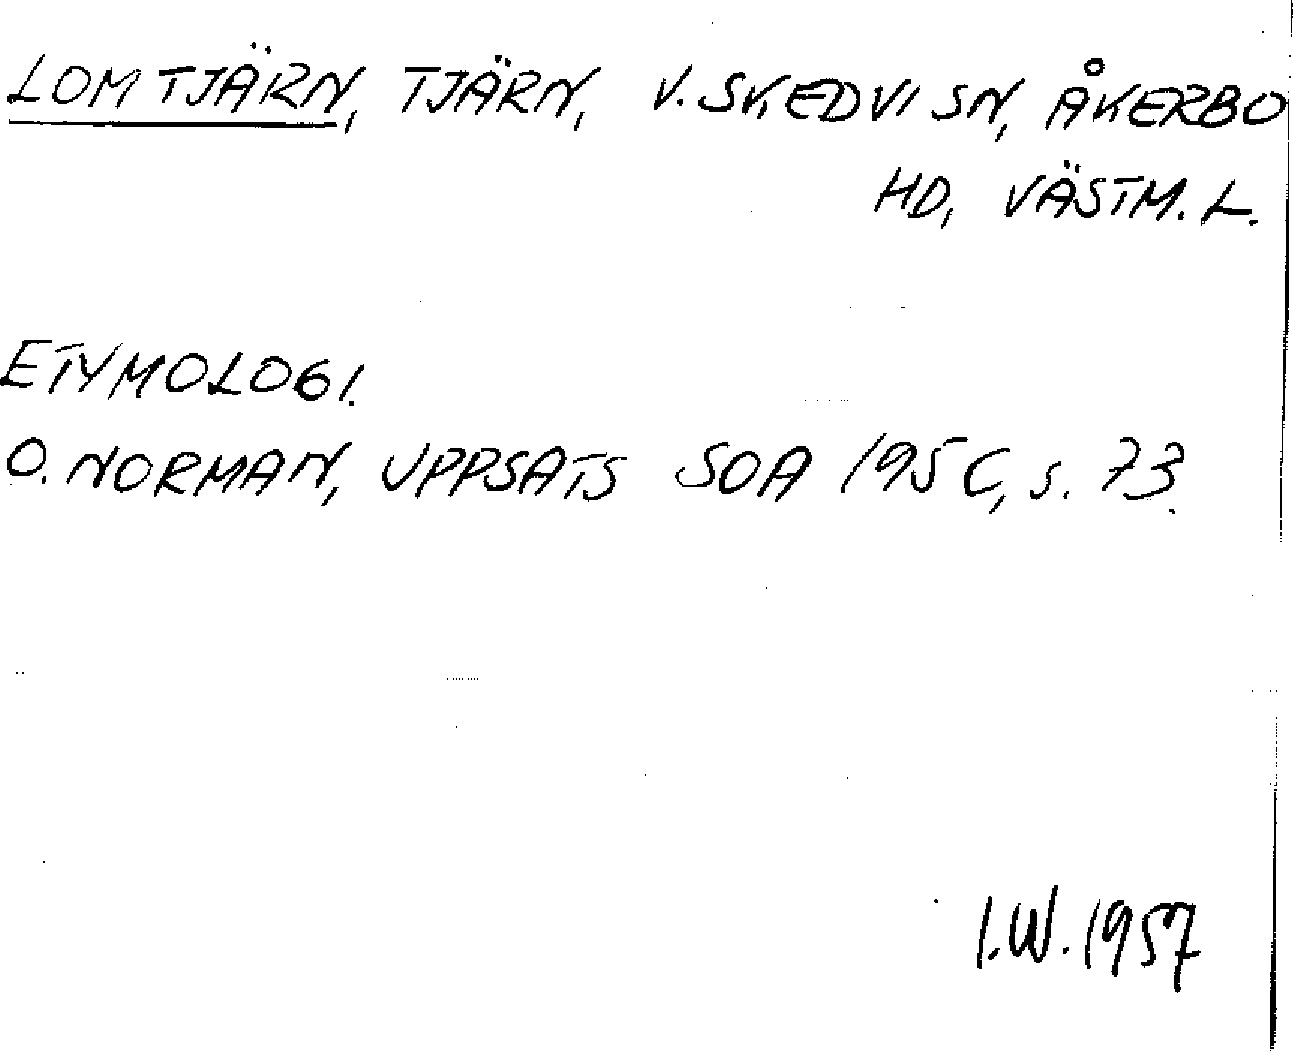 LOMTJÄRN, TJÄRN, V. SKEDVI SN, ÅKERBO
HD, VÄSTM. L.
ETYMOLOGI.
O. NORMAN, UPPSATS SOA 1956, s. 73.
I.W. 1957